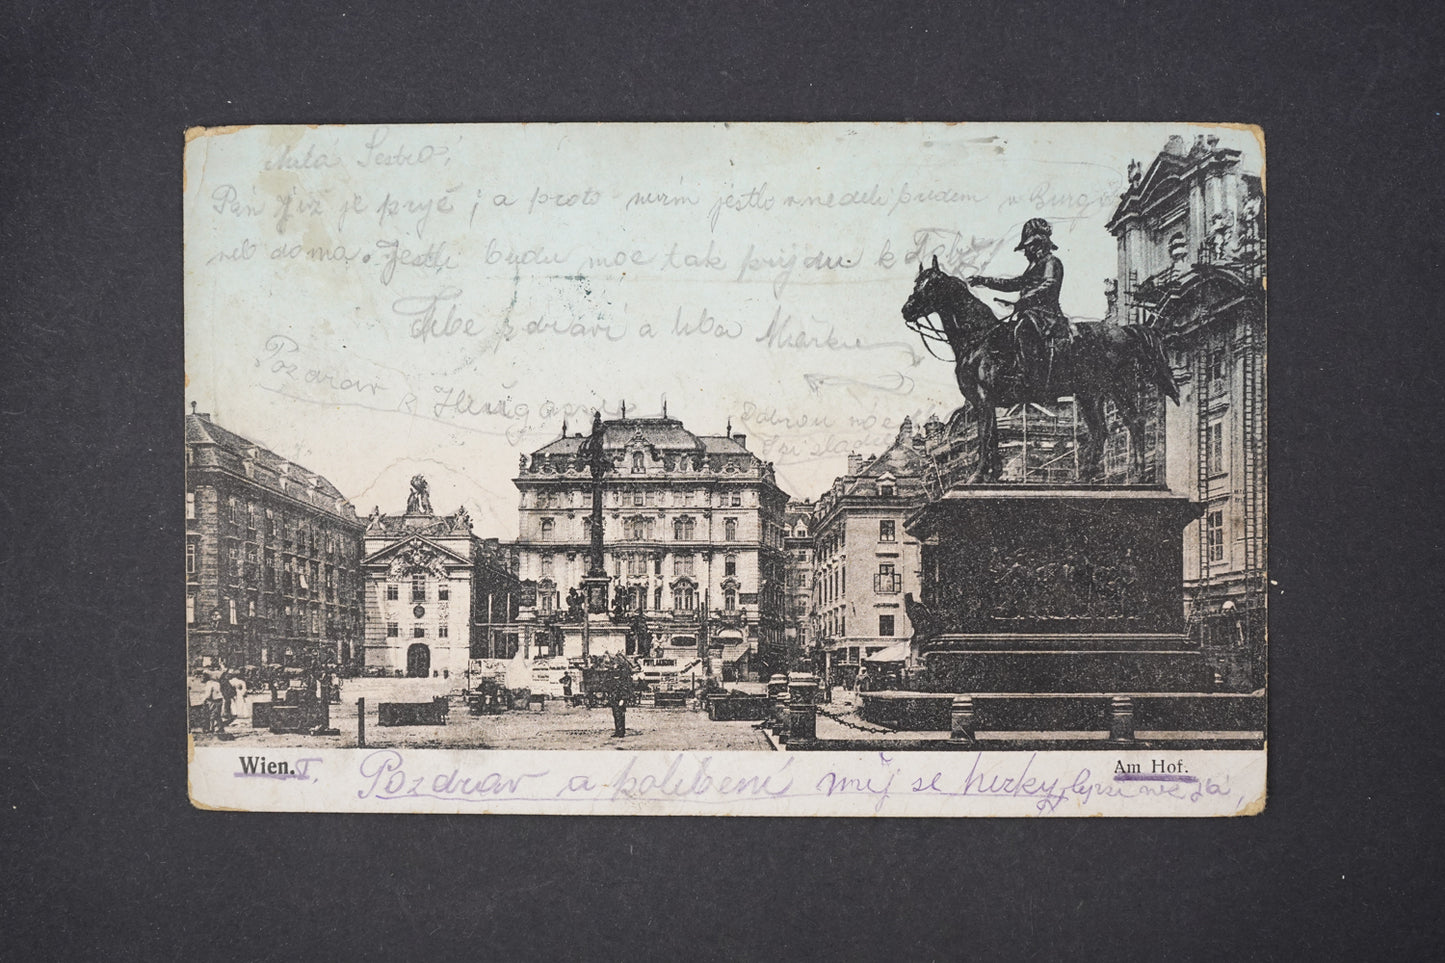 Milá Sestro!
Pán již je pryč; a proto nevím jestlo v neděli přidem v Burgu
neb doma. Jestli budu moc tak prijdu k Tobě!
Tebe zdraví a líbá
Pozdrav
Dobrou noc
Spi sladce
Wien. I. Am Hof.
Pozdrav a políbení měj se hezky lepší než já,